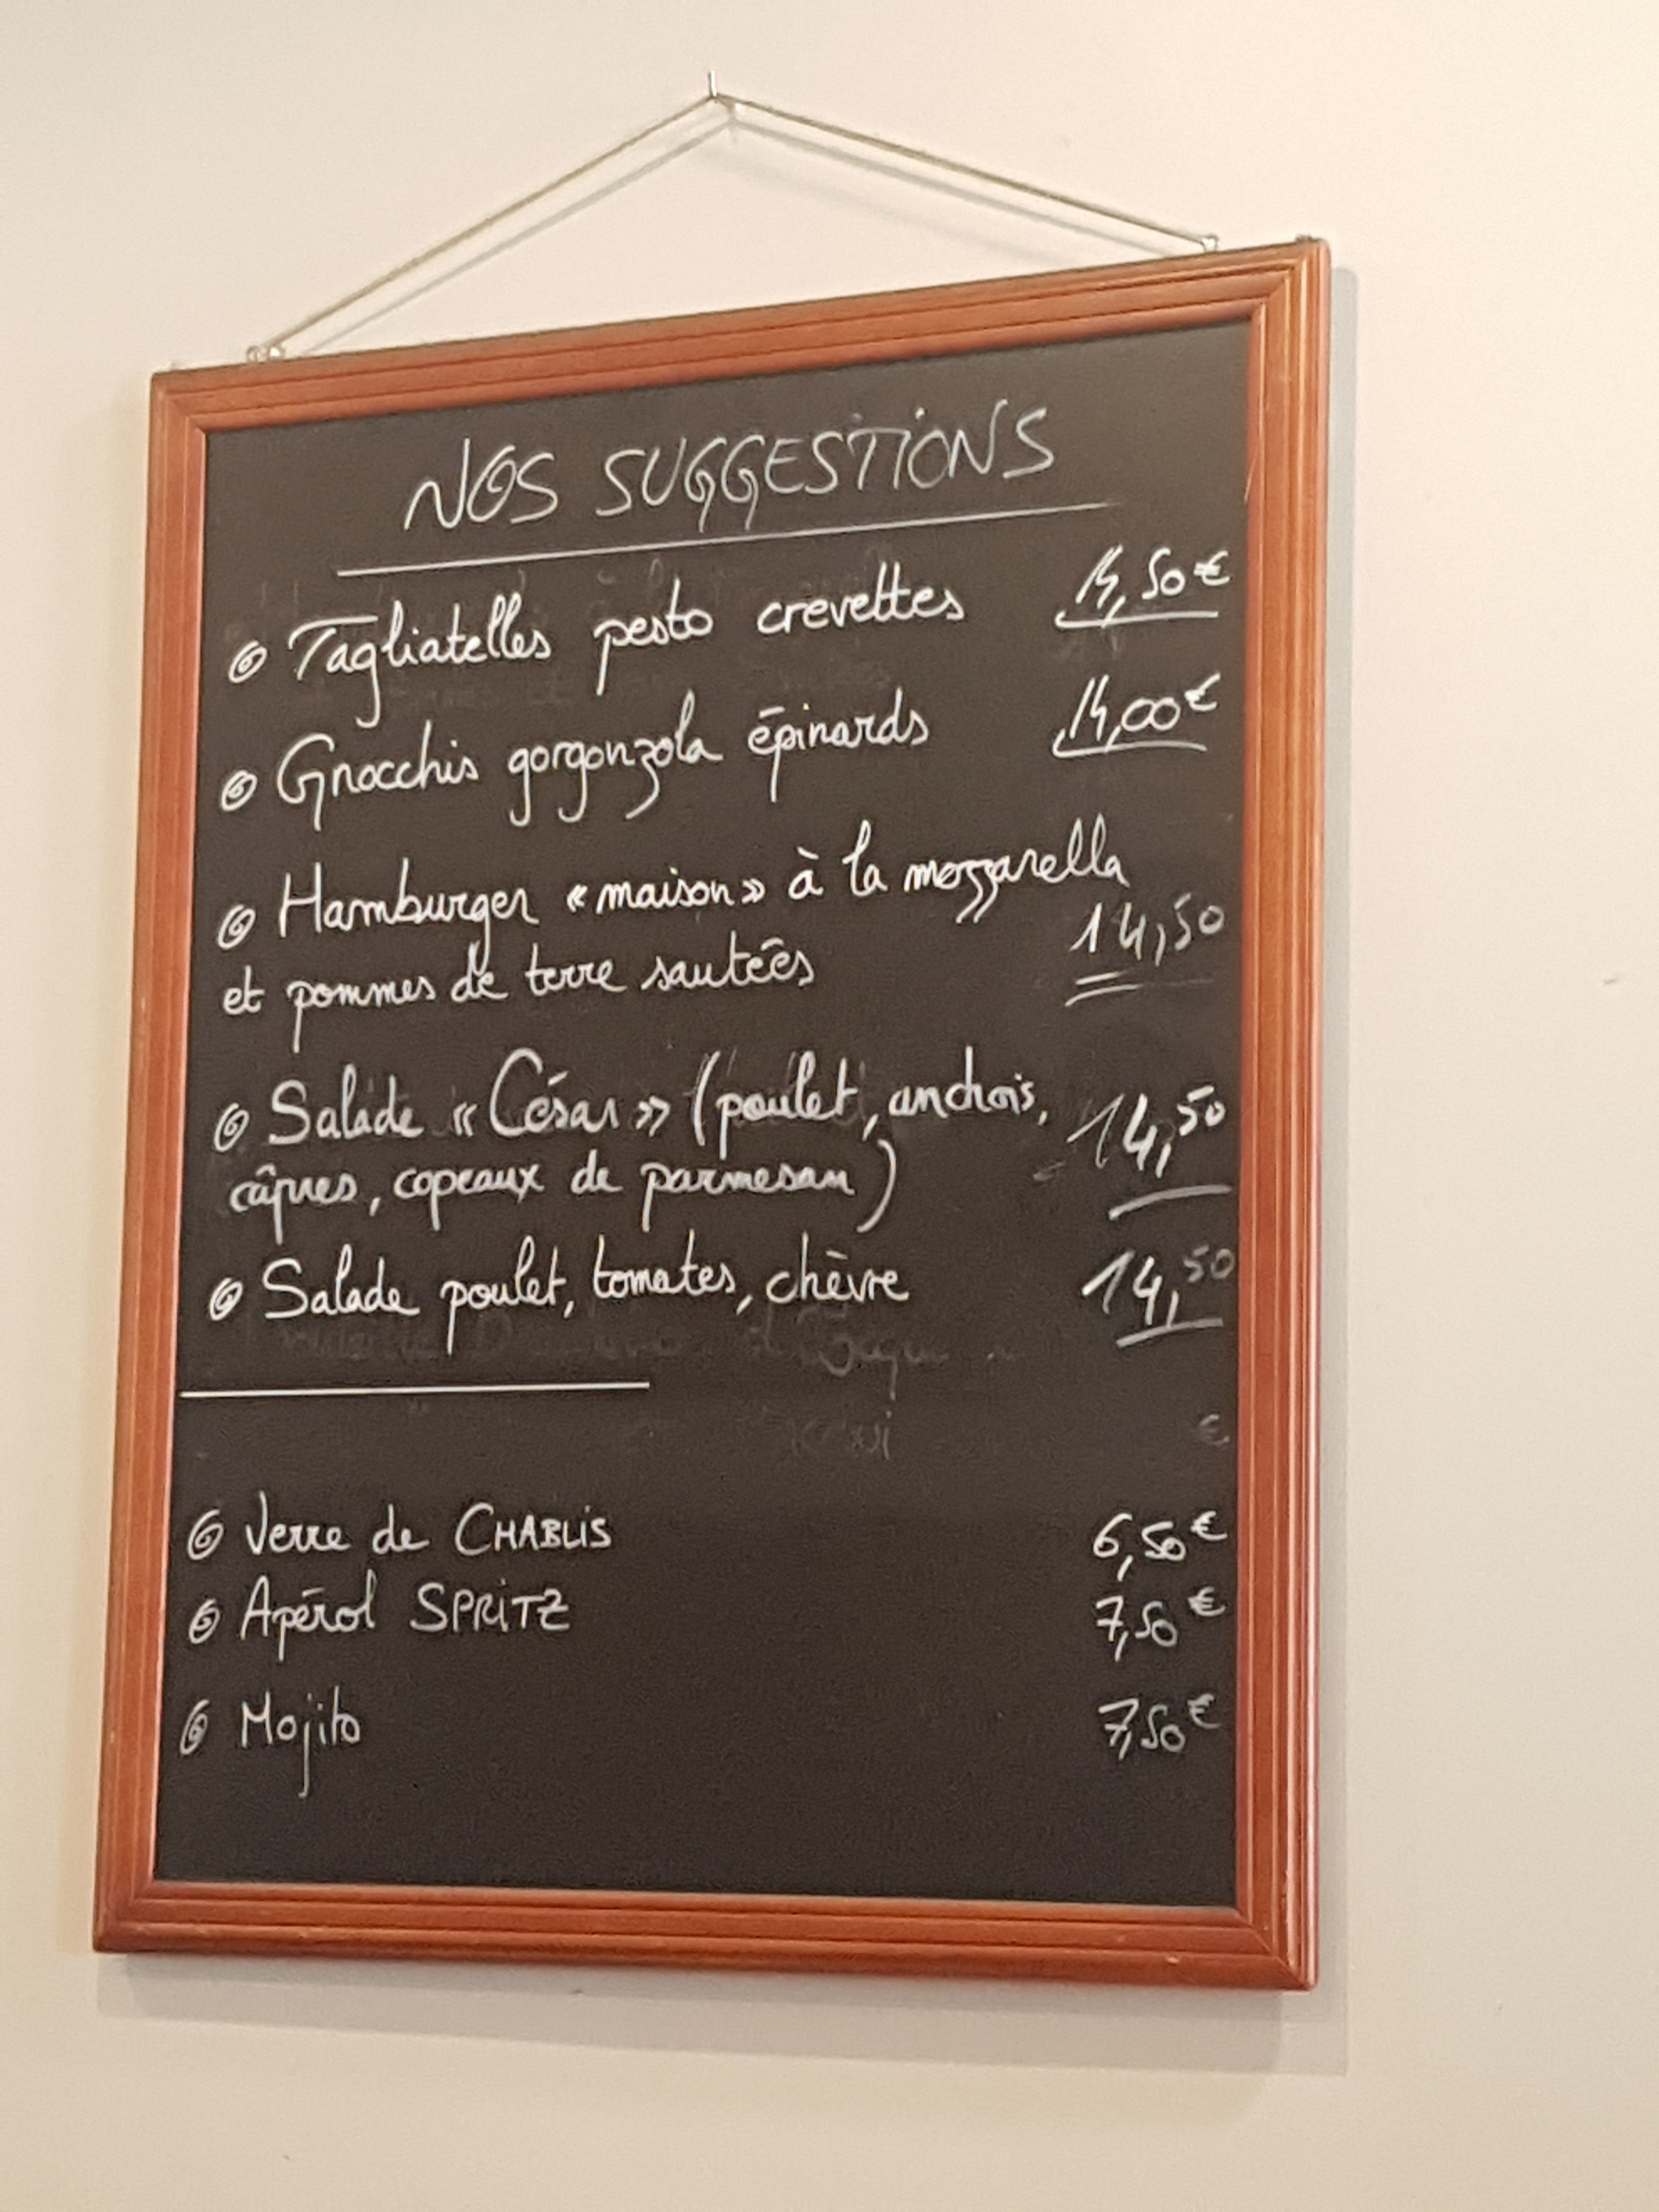 NOS SUGGESTIONS
Tagliatelles pesto crevettes 14,50€
Gnocchis gorgonzola épinards 14,00€
Hamburger « maison » à la mozzarella
et pommes de terre sautées 14,50
Salade « César » (poulet, anchois, 14,50
câpres, copeaux de parmesan)
Salade poulet, tomates, chèvre 14,50
€
Verre de CHABLIS 6,50€
Apérol SPRITZ 7,50€
Mojito 7,50€